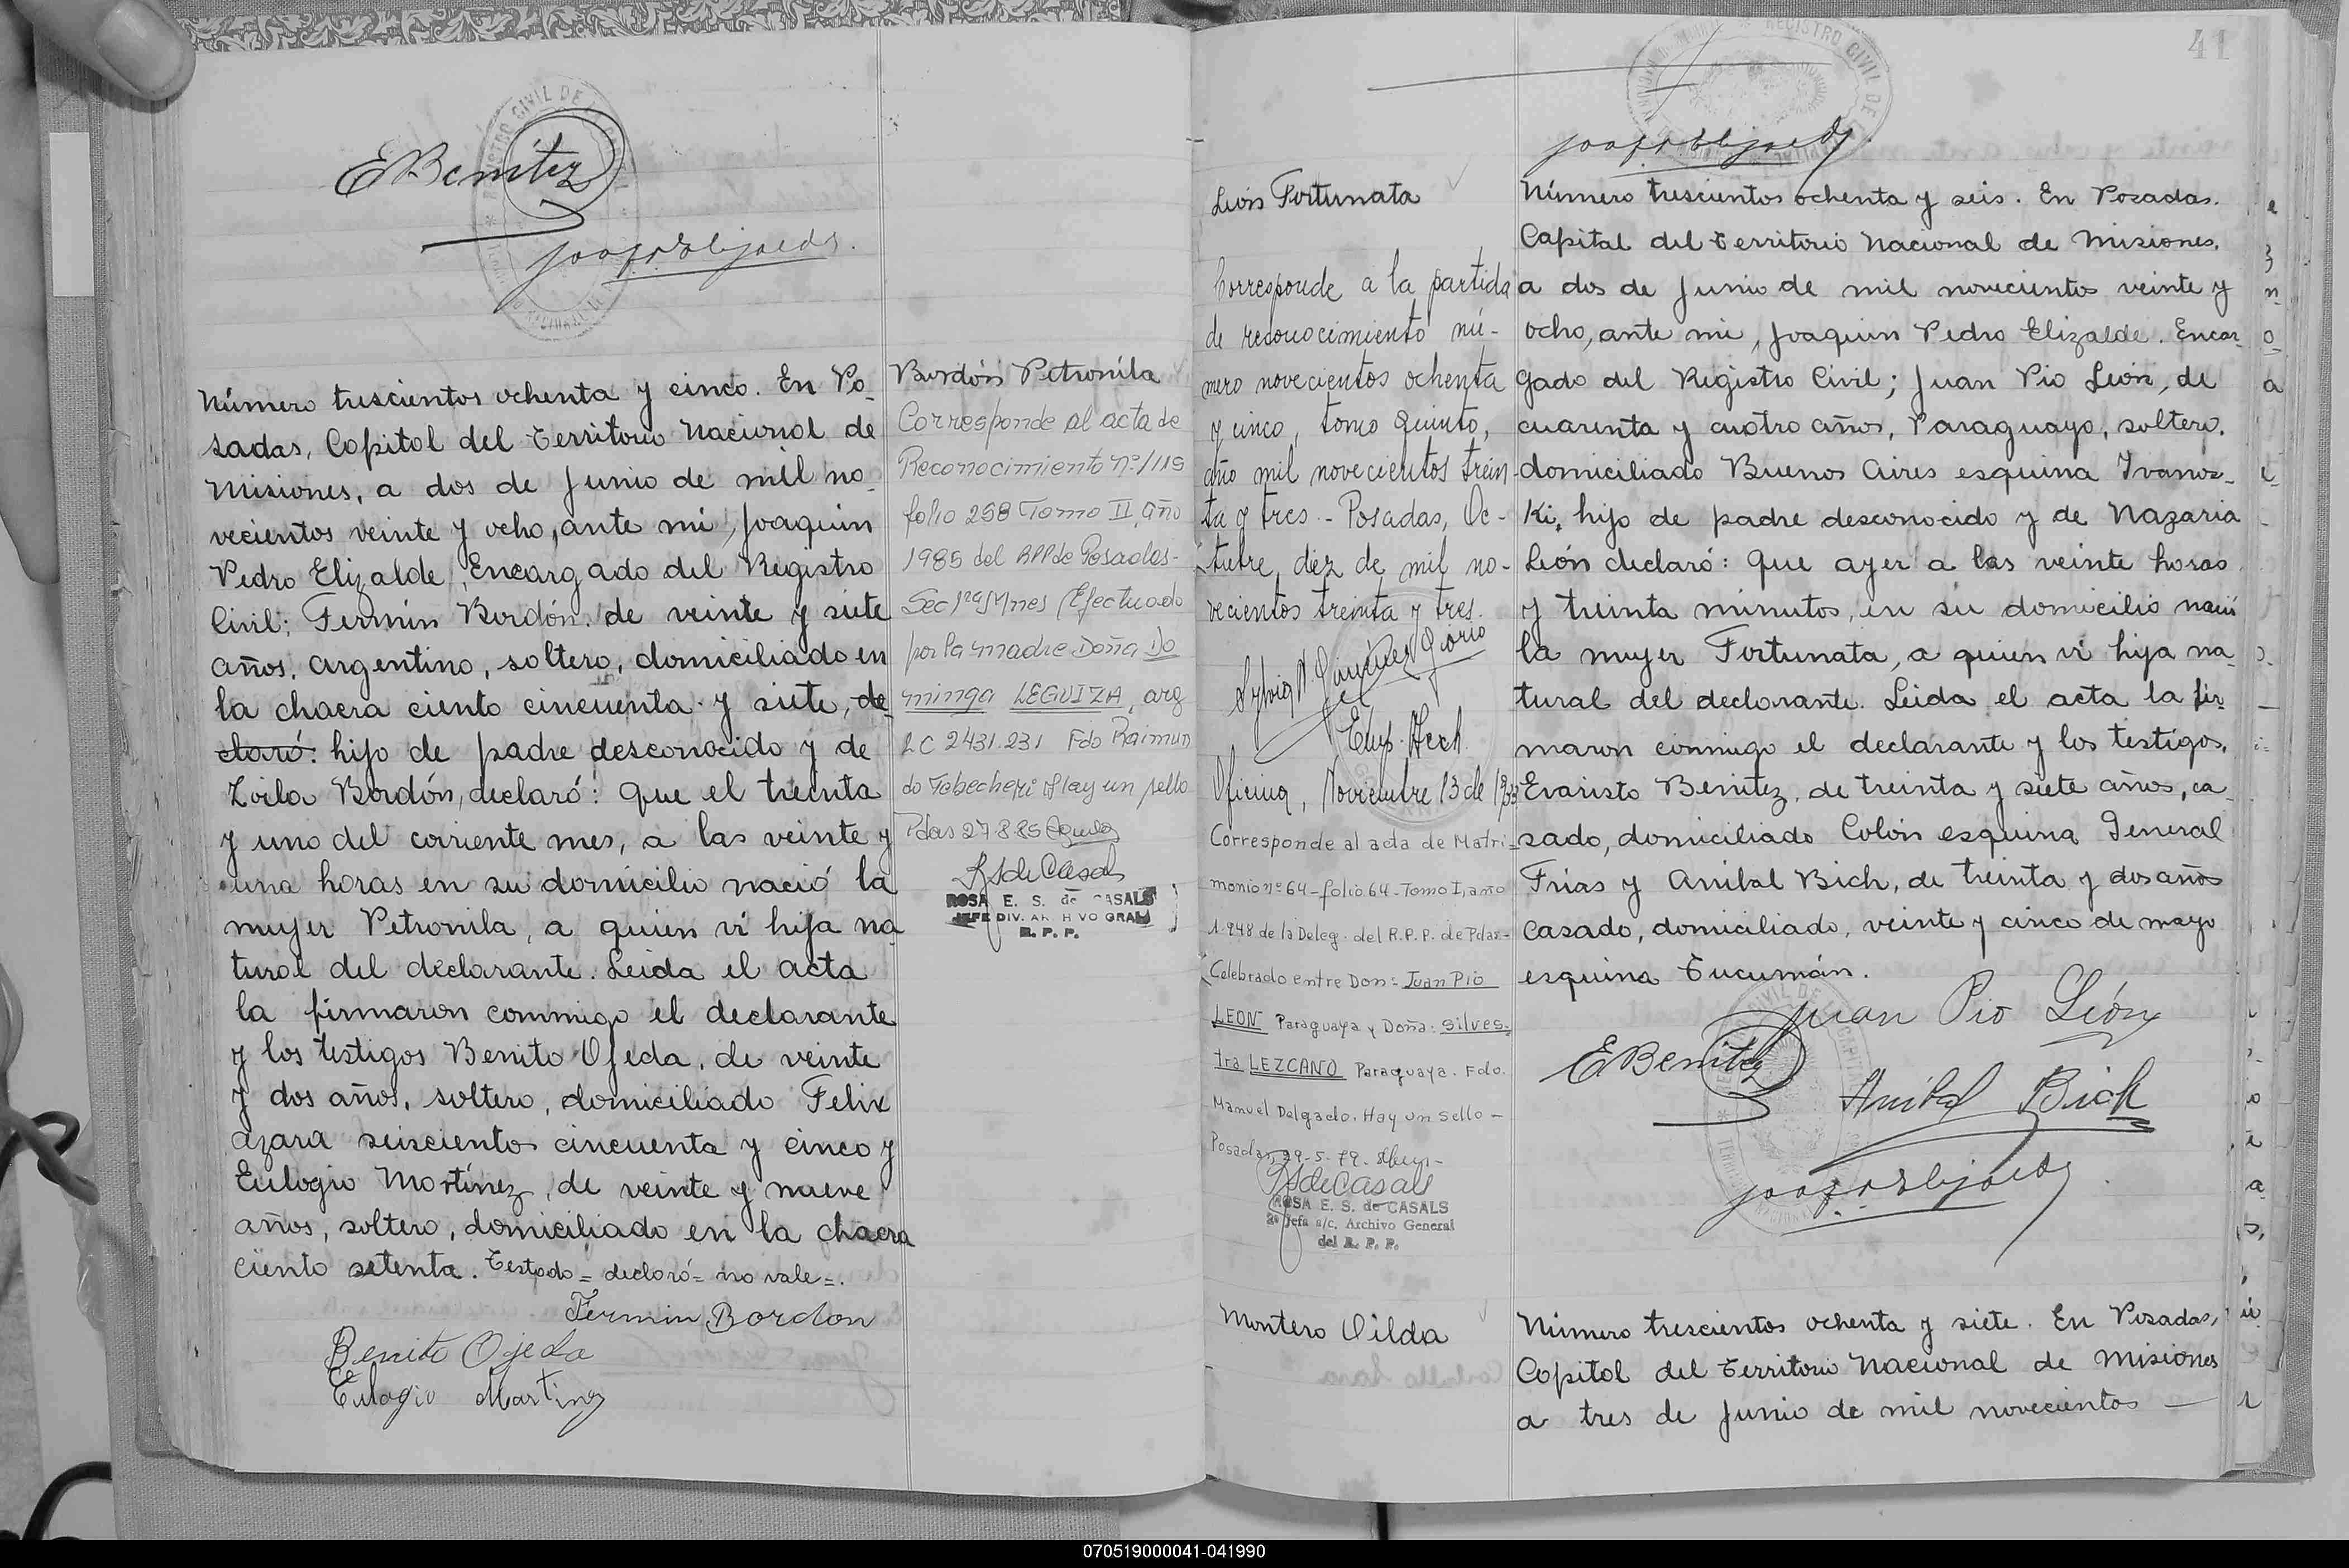 E Benítez
Número trescientos ochenta y cinco. En Po-
sadas, Capital del Territorio Nacional de
Misiones, a dos de Junio de mil no-
vecientos veinte y ocho, ante mi, Joaquin
Pedro Elizalde, Encargado del Registro
Civil; Fermín Bordón, de veinte y siete
años, argentino, soltero, domiciliado en
la chacra ciento cincuenta y siete, de-
claró: hijo de padre desconocido y de
Zoila Bordón, declaró: Que el treinta
y uno del corriente mes, a las veinte y
una horas en su domicilio nació la
mujer Petronila, a quien ví hija na-
tural del declarante. Leida el acta
la firmaron conmigo el declarante
y los testigos Benito Ojeda, de veinte
y dos años, soltero, domiciliado Felix
Azara seiscientos cincuenta y cinco y
Eulogio Martínez, de veinte y nueve
años, soltero, domiciliado en la chacra
ciento setenta. Testado = declaró = no vale =.
Fermin Bordon
Benito Ojeda
Eulogio Martinez
Bordón Petronila
Corresponde al acta de
Reconocimiento nº 1119
folio 298 Tomo II, año
1985 del RPP de Posadas-
Sec 1ra Mnes (Efectuado
por la madre Doña Do
minga LEGUIZA, arg
LC 2431.231 Fdo Raimun
do Tebecheri Hay un sello
Pdas 27.8.85
RSdeCasals
ROSA E. S. de CASALS
JEFE DIV. ARCHIVO GRAL
R. P. P.
41
León Fortunata
Corresponde a la partida
de reconocimiento nú-
mero novecientos ochenta
y cinco, tomo quinto,
año mil novecientos trein-
ta y tres.- Posadas, Oc-
tubre, diez de mil no-
vecientos treinta y tres.
Oficina, Noviembre 13 de 1933
Corresponde al acta de Matri-
monio nº 64 - folio 64 - Tomo I, año
1.948 de la Deleg. del R.P.P. de Pdas-
Celebrado entre Don: Juan Pio
LEON Paraguaya y Doña: Silves-
tra LEZCANO Paraguaya. Fdo.
Manuel Delgado. Hay un sello -
Posadas, 29-5-79.
RSdeCasals
ROSA E. S. de CASALS
2ª Jefa a/c. Archivo General
del R. P. P.
Número trescientos ochenta y seis. En Posadas.
Capital del Territorio Nacional de Misiones,
a dos de Junio de mil novecientos veinte y
ocho, ante mi, Joaquin Pedro Elizalde. Encar-
gado del Registro Civil; Juan Pio León, de
cuarenta y cuatro años, Paraguayo, soltero,
domiciliado Buenos Aires esquina Ivanos-
ki, hijo de padre desconocido y de Nazaria
León declaró: Que ayer a las veinte horas
y treinta minutos, en su domicilio nació
la mujer Fortunata, a quien ví hija na-
tural del declarante. Leida el acta la fir-
maron conmigo el declarante y los testigos,
Evaristo Benítez, de treinta y siete años, ca-
sado, domiciliado Colón esquina General
Frías y Anibal Bich, de treinta y dos años
casado, domiciliado, veinte y cinco de mayo
esquina Tucumán.
Juan Pio León
E Benítez
Anibal Bich
Montero Oilda
Número trescientos ochenta y siete. En Posadas,
Capital del Territorio Nacional de Misiones
a tres de Junio de mil novecientos —
070519000041-041990